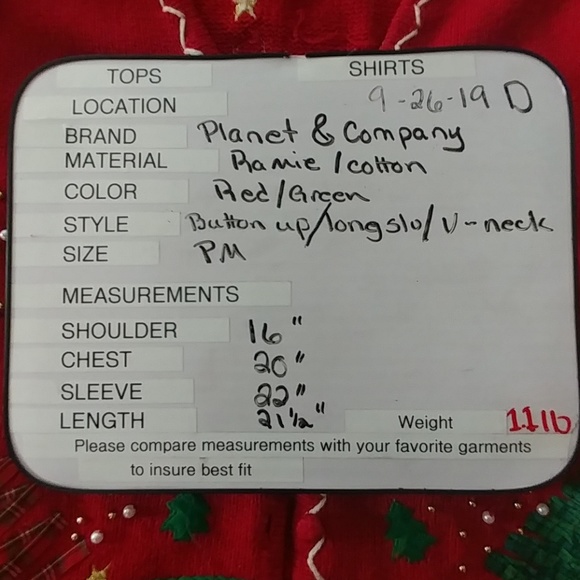 TOPS SHIRTS
LOCATION 9-26-19 D
BRAND Planet & Company
MATERIAL Ramie/cotton
COLOR Red/Green
STYLE Button up/longslv/V-neck
SIZE PM
MEASUREMENTS
SHOULDER 16"
CHEST 20"
SLEEVE 22"
LENGTH 21½" Weight 1.1lb
Please compare measurements with your favorite garments
to insure best fit